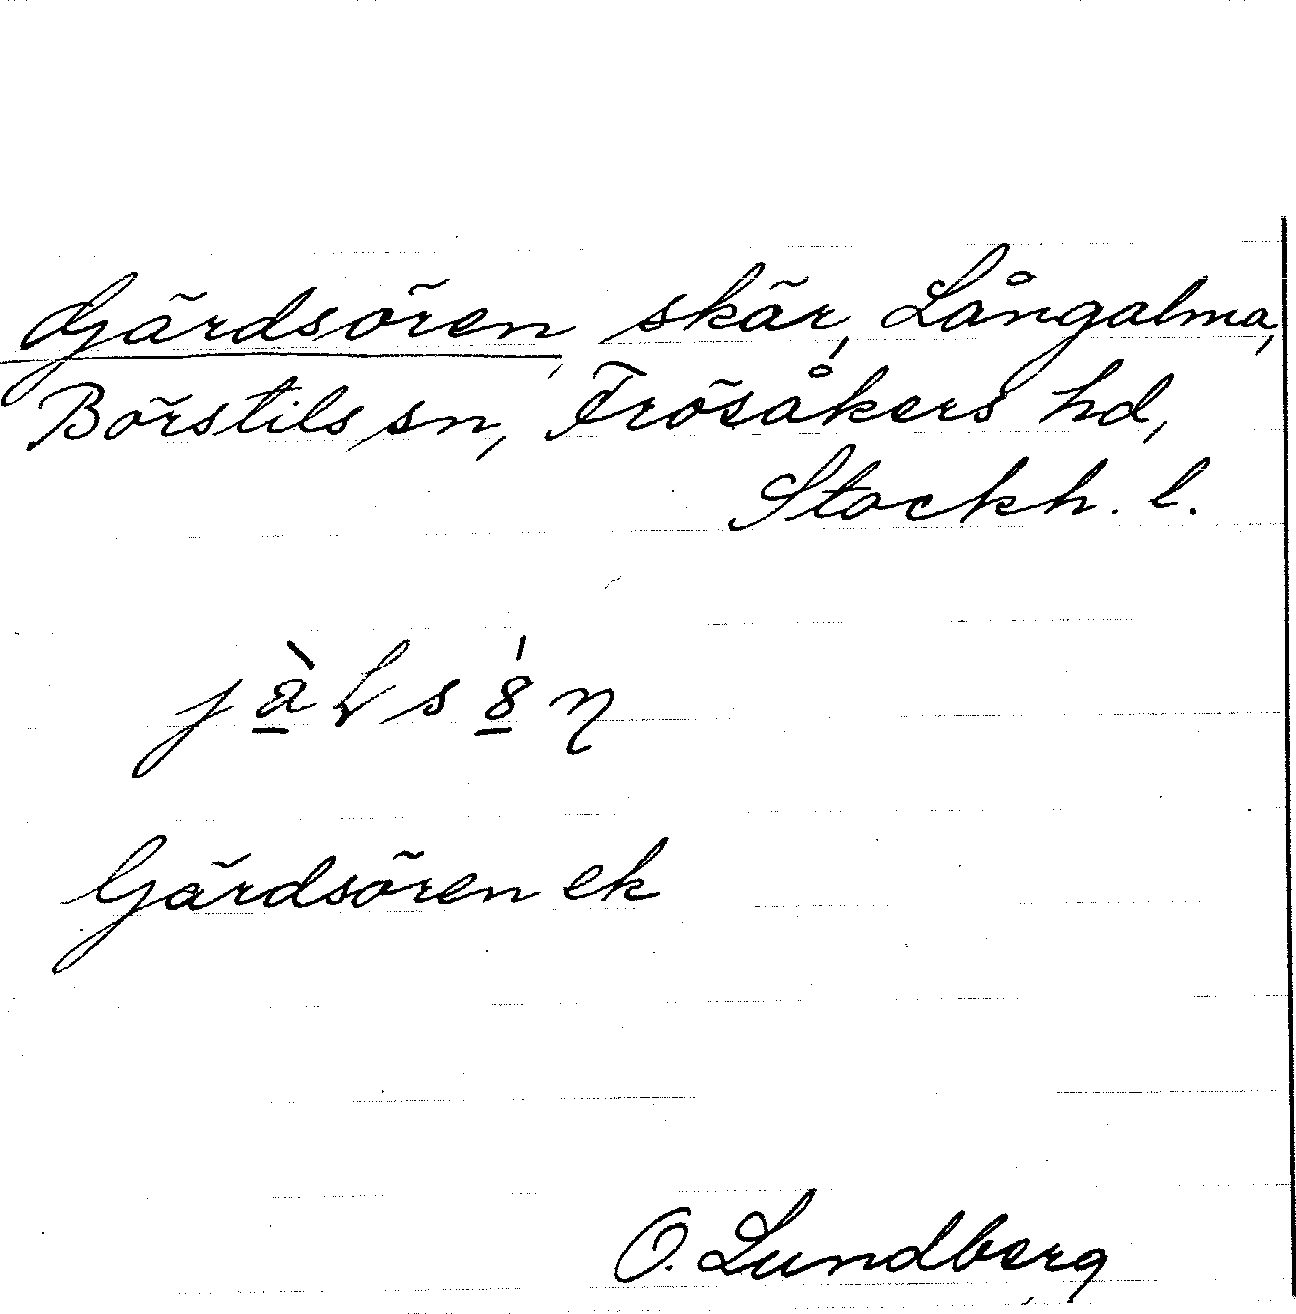 Gärdsören, skär, Långalma,
Börstils sn, Frösåkers hd,
Stockh. l.
Gärdsören ek
O. Lundberg